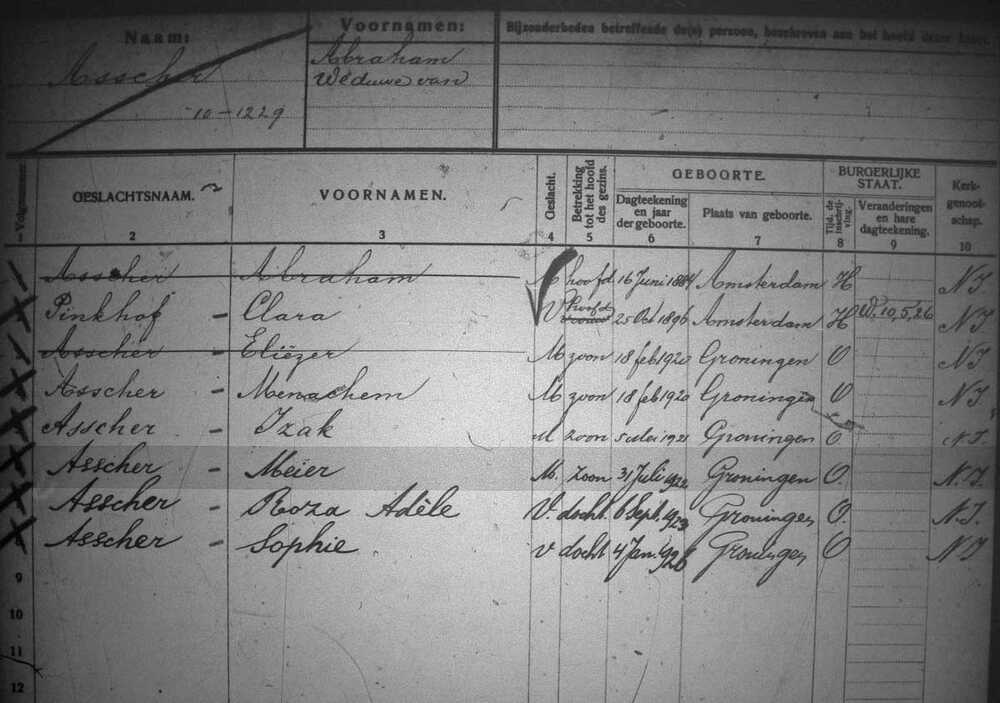 Naam: Voornamen: Bijzonderheden betreffende de(n) persoon, beschreven aan het hoofd dezer kaart.
Asscher Abraham
Weduwe van
10-1229
Volgnummer. GESLACHTSNAAM. VOORNAMEN. Geslacht. Betrekking tot het hoofd des gezins. GEBOORTE. Dagteekening en jaar der geboorte. Plaats van geboorte. BURGERLIJKE STAAT. Tijd. de inschrijving. Veranderingen en hare dagteekening. Kerkgenootschap.
2 3 4 5 6 7 8 9 10
Asscher Abraham M hoofd 16 Juni 1884 Amsterdam H N.I.
Pinkhof - Clara V hoofd 25 Oct 1896 Amsterdam H W, 10,5,26 N.I.
Asscher - Eliëzer M zoon 18 feb 1920 Groningen O N.I.
Asscher - Menachem M zoon 18 feb 1920 Groningen O N.I.
Asscher - Izak M zoon 5 Mei 1921 Groningen O N.I.
Asscher - Meier M. zoon 31 Juli 1922 Groningen O. N.I.
Asscher - Roza Adèle V. docht. 6 Sept. 1923 Groningen O. N.I.
8 Asscher - Sophie V docht 4 Jan. 1926 Groningen O N.I.
9
10
11
12